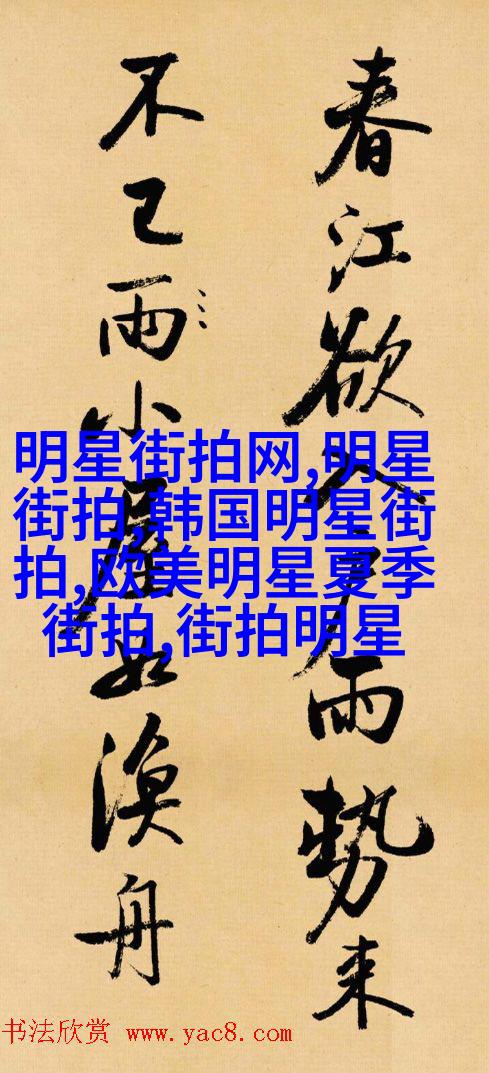 春江欲入户雨勢来
不已雨小屋如漁舟
明星街拍网,明星
街拍,韩国明星街
拍,欧美明星夏季
街拍,街拍明星
书法欣赏 www.yac8.com